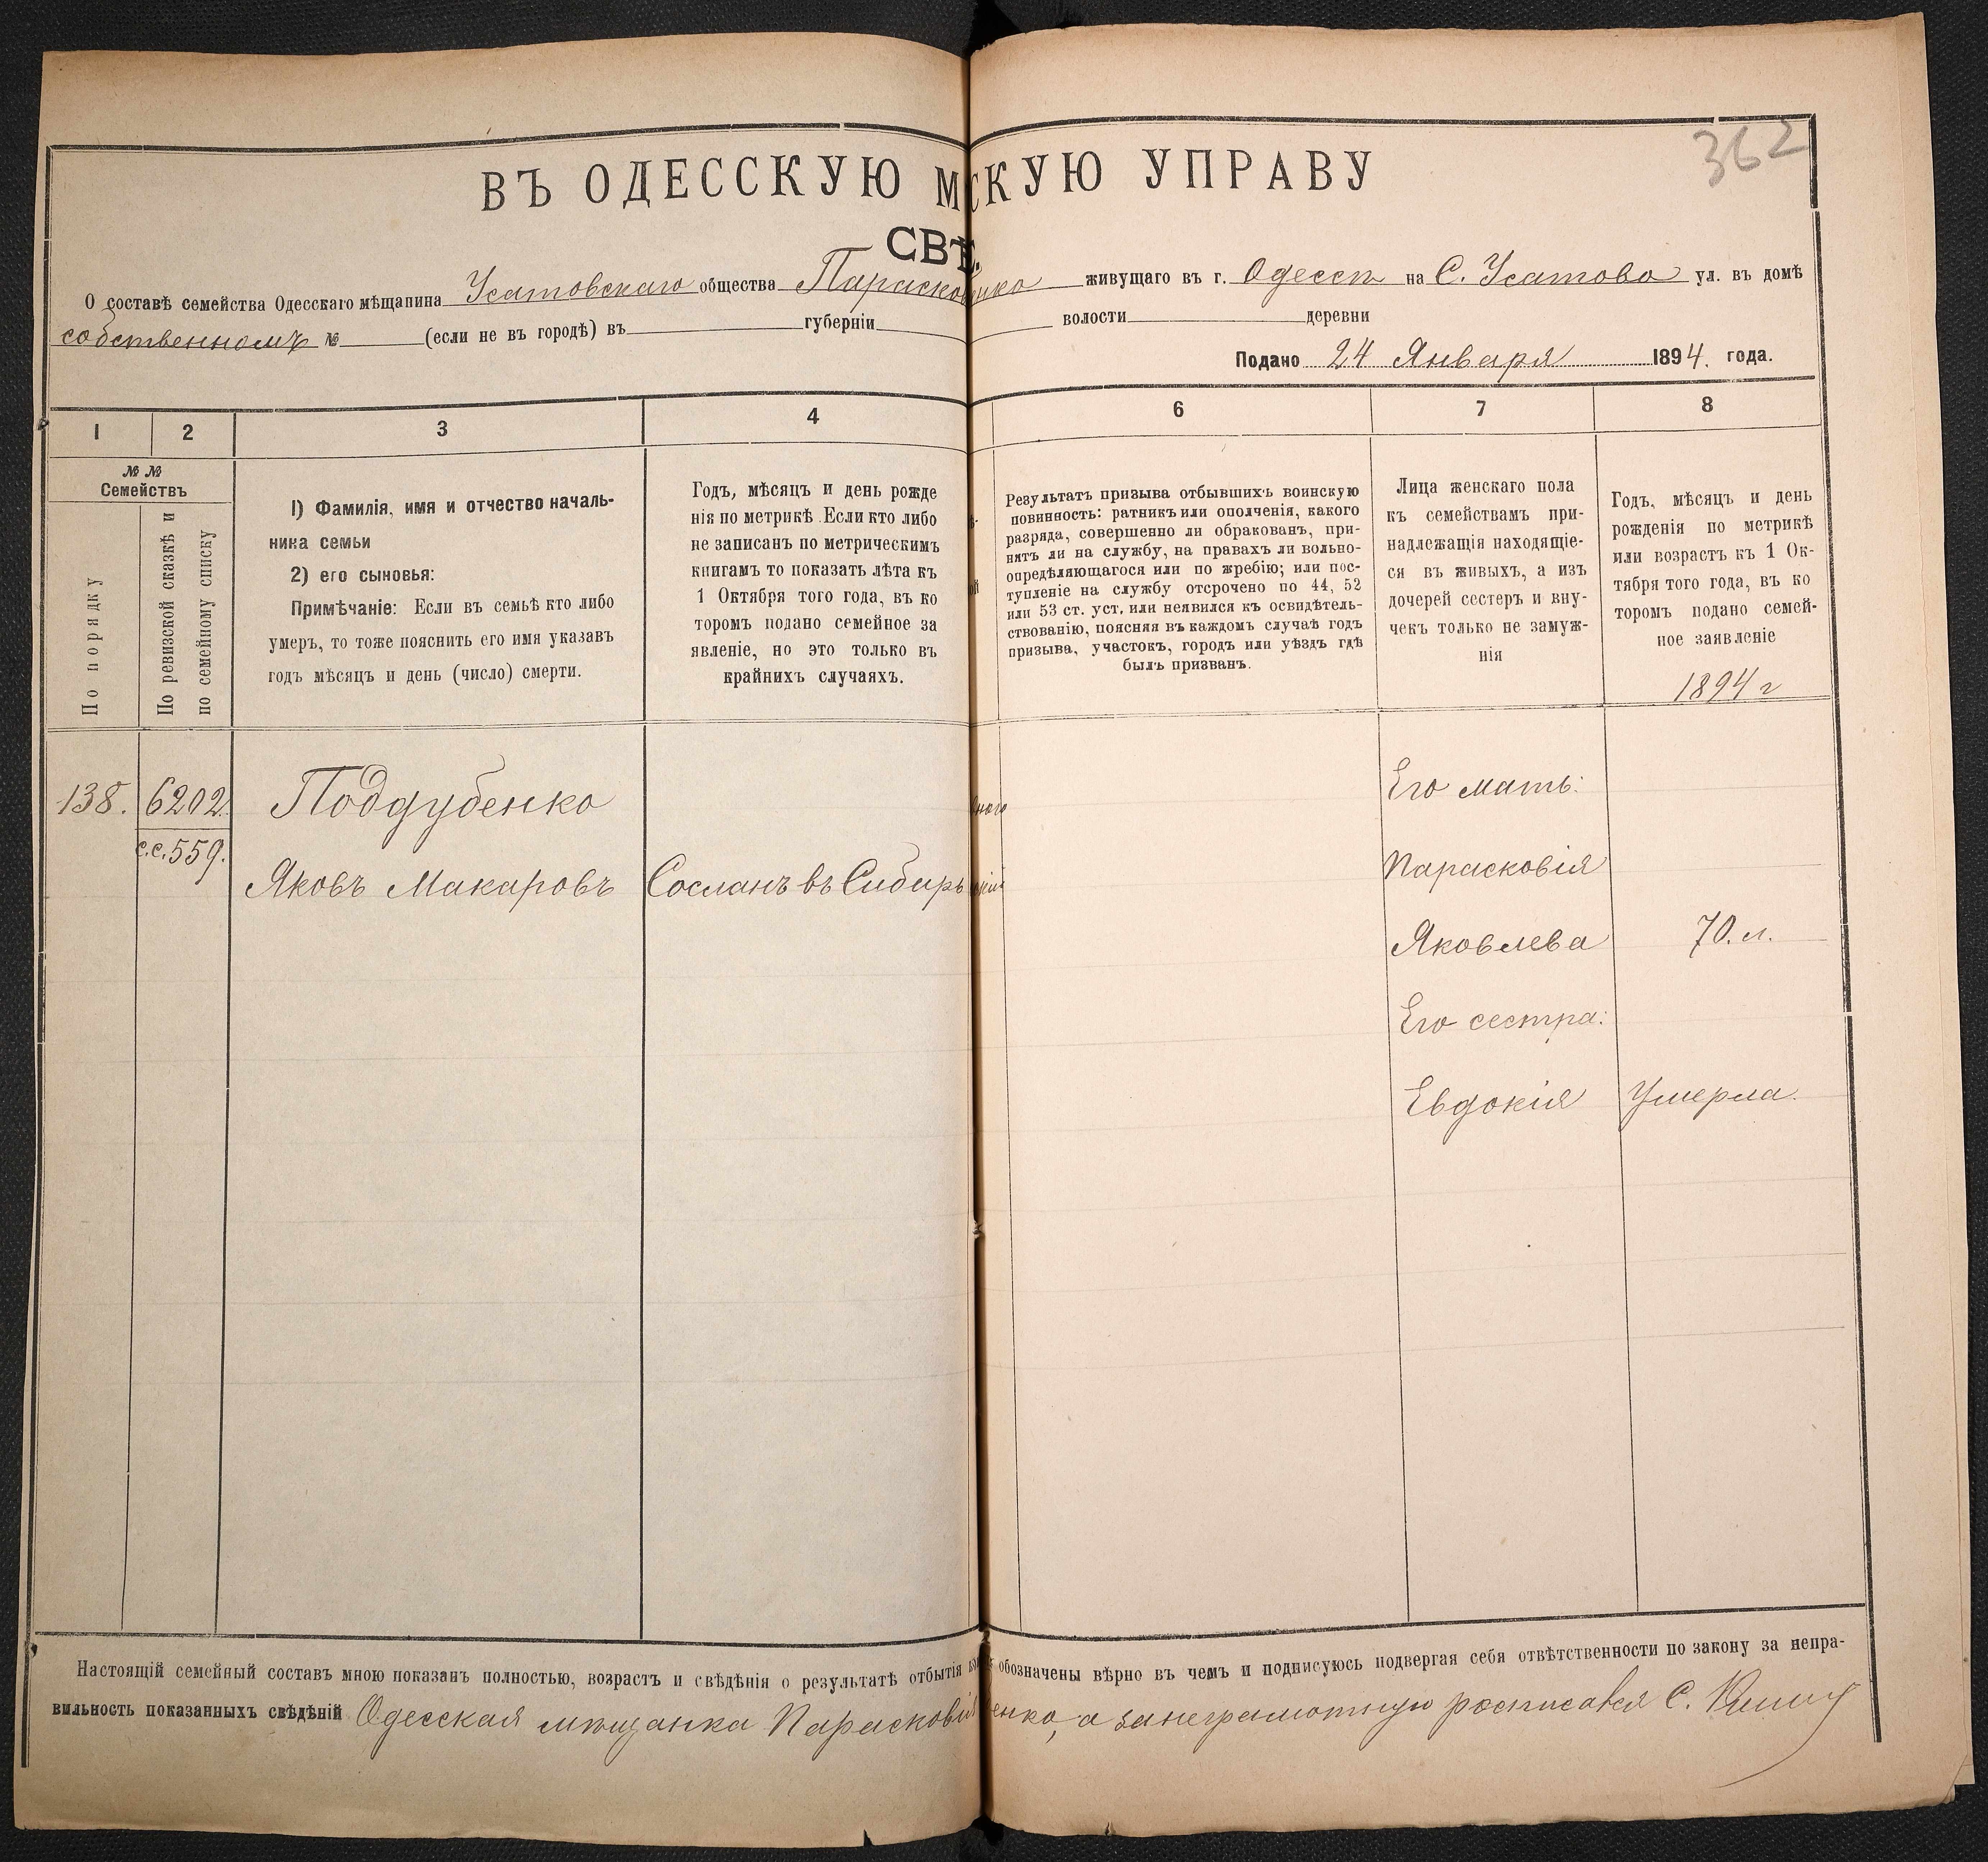 362
ВЪ ОДЕССКУЮ М СКУЮ УПРАВУ
СВѢ
О составѣ семейства Одесскаго мѣщанина Усатовскаго общества Параско нко живущаго въ г. Одессѣ на С. Усатово ул. въ домѣ
собственномъ № (если не въ городѣ) въ губерніи волости деревни
Подано 24 Января 1894. года.
1 2 3 4 6 7 8
№ №
Семействъ
По порядку
По ревизской сказкѣ и
по семейному списку
1) Фамилія, имя и отчество началь-
ника семьи
2) его сыновья:
Примѣчаніе: Если въ семьѣ кто либо
умеръ, то тоже пояснить его имя указавъ
годъ мѣсяцъ и день (число) смерти.
Годъ, мѣсяцъ и день рожде
нія по метрикѣ. Если кто либо
не записанъ по метрическимъ
книгамъ то показать лѣта къ
1 Октября того года, въ ко
торомъ подано семейное за
явленіе, но это только въ
крайнихъ случаяхъ.
Результатъ призыва отбывшихъ воинскую
повинность: ратникъ или ополченія, какого
разряда, совершенно ли обракованъ, при-
нятъ ли на службу, на правахъ ли вольно-
опредѣляющагося или по жребію; или пос-
тупленіе на службу отсрочено по 44, 52
или 53 ст. уст. или неявился къ освидѣтель-
ствованію, поясняя въ каждомъ случаѣ годъ
призыва, участокъ, городъ или уѣздъ гдѣ
былъ призванъ.
Лица женскаго пола
къ семействамъ при-
надлежащія находящіе-
ся въ живыхъ, а изъ
дочерей сестеръ и вну-
чекъ только не замуж-
нія
Годъ, мѣсяцъ и день
рожденія по метрикѣ
или возрастъ къ 1 Ок-
тября того года, въ ко
торомъ подано семей-
ное заявленіе
1894 г
138. 6202. Поддубенко Его мать:
с.с. 559.
Яковъ Макаровъ Сосланъ въ Сибирь Парасковія
Яковлева 70. л.
Его сестра:
Евдокія Умерла.
Настоящій семейный составъ мною показанъ полностью, возрастъ и свѣдѣнія о результатѣ отбытія обозначены вѣрно въ чемъ и подписуюсь подвергая себя отвѣтственности по закону за непра-
вильность показанныхъ свѣдѣній Одесская мѣщанка Парасковія енко, а занеграмотную росписався С.